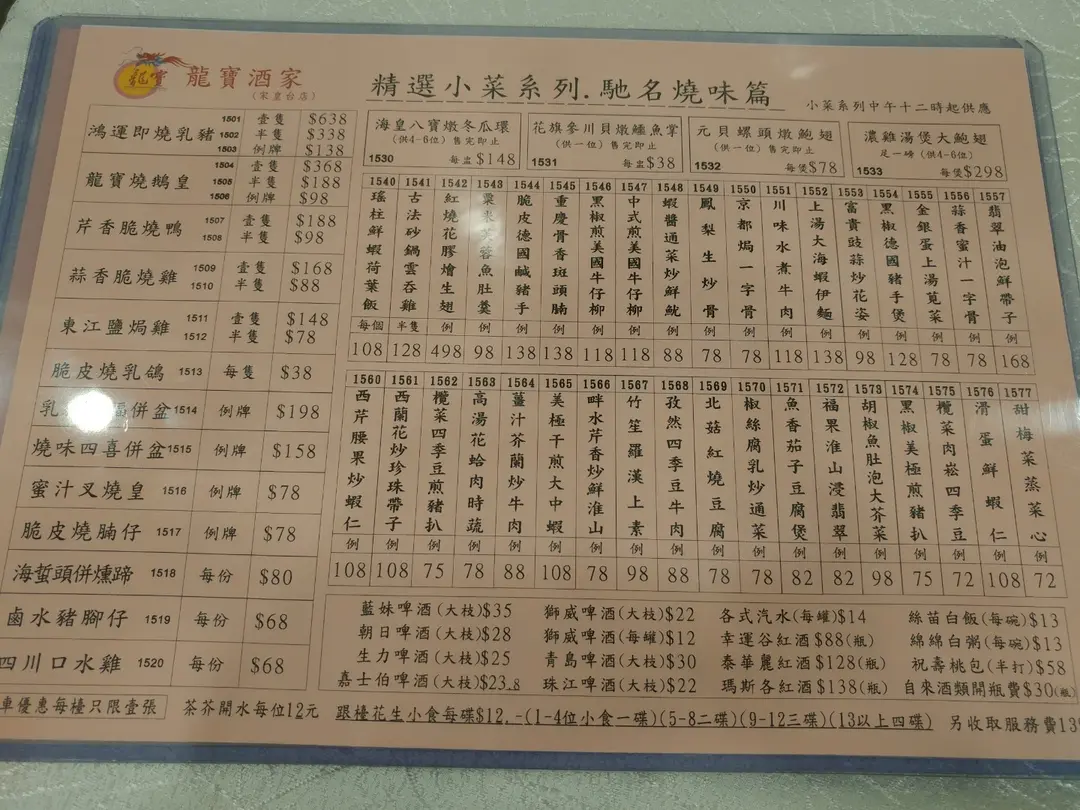 龍寶
龍寶酒家
(宋皇台店)
精選小菜系列.馳名燒味篇
小菜系列中午十二時起供應
鴻運即燒乳豬 1501 壹隻 $638
1502 半隻 $338
1503 例牌 $138
龍寶燒鵝皇 1504 壹隻 $368
1505 半隻 $188
1506 例牌 $98
芹香脆燒鴨 1507 壹隻 $188
1508 半隻 $98
蒜香脆燒雞 1509 壹隻 $168
1510 半隻 $88
東江鹽焗雞 1511 壹隻 $148
1512 半隻 $78
脆皮燒乳鴿 1513 每隻 $38
乳 併盆 1514 例牌 $198
燒味四喜併盆 1515 例牌 $158
蜜汁叉燒皇 1516 例牌 $78
脆皮燒腩仔 1517 例牌 $78
海蜇頭併燻蹄 1518 每份 $80
鹵水豬腳仔 1519 每份 $68
四川口水雞 1520 每份 $68
海皇八寶燉冬瓜環
(供4-6位) 售完即止
1530 每盅 $148
花旗參川貝燉鱷魚掌
(供一位) 售完即止
1531 每盅 $38
元貝螺頭燉鮑翅
(供一位) 售完即止
1532 每煲 $78
濃雞湯煲大鮑翅
足一磅 (供4-6位)
1533 每煲 $298
1540 瑤柱鮮蝦荷葉飯 每個 108
1541 古法砂鍋雲吞雞 半隻 128
1542 紅燒花膠燴生翅 例 498
1543 粟米芙蓉魚肚羹 例 98
1544 脆皮德國鹹豬手 例 138
1545 重慶骨香斑頭腩 例 138
1546 黑椒煎美國牛仔柳 例 118
1547 中式煎美國牛仔柳 例 118
1548 蝦醬通菜炒鮮魷 例 88
1549 鳳梨生炒骨 例 78
1550 京都焗一字骨 例 78
1551 川味水煮牛肉 例 118
1552 上湯大海蝦伊麵 例 138
1553 富貴豉蒜炒花姿 例 98
1554 黑椒德國豬手煲 例 128
1555 金銀蛋上湯莧菜 例 78
1556 蒜香蜜汁一字骨 例 78
1557 翡翠油泡鮮帶子 例 168
1560 西芹腰果炒蝦仁 例 108
1561 西蘭花炒珍珠帶子 例 108
1562 欖菜四季豆煎豬扒 例 75
1563 高湯花蛤肉時蔬 例 78
1564 薑汁芥蘭炒牛肉 例 88
1565 美極干煎大中蝦 例 108
1566 畔水芹香炒鮮淮山 例 78
1567 竹笙羅漢上素 例 98
1568 孜然四季豆牛肉 例 88
1569 北菇紅燒豆腐 例 78
1570 椒絲腐乳炒通菜 例 78
1571 魚香茄子豆腐煲 例 82
1572 福果淮山浸翡翠 例 82
1573 胡椒魚肚泡大芥菜 例 98
1574 黑椒美極煎豬扒 例 75
1575 欖菜肉崧四季豆 例 72
1576 滑蛋鮮蝦仁 例 108
1577 甜梅菜蒸菜心 例 72
藍妹啤酒(大枝)$35 獅威啤酒(大枝)$22 各式汽水(每罐)$14 絲苗白飯(每碗)$13
朝日啤酒(大枝)$28 獅威啤酒(每罐)$12 幸運谷紅酒$88(瓶) 綿綿白粥(每碗)$13
生力啤酒(大枝)$25 青島啤酒(大枝)$30 泰華麗紅酒$128(瓶) 祝壽桃包(半打)$58
嘉士伯啤酒(大枝)$23.8 珠江啤酒(大枝)$22 瑪斯各紅酒$138(瓶) 自來酒類開瓶費$30(瓶)
車優惠每檯只限壹張 茶芥開水每位12元 跟檯花生小食每碟$12.-(1-4位小食一碟)(5-8二碟)(9-12三碟)(13以上四碟) 另收取服務費